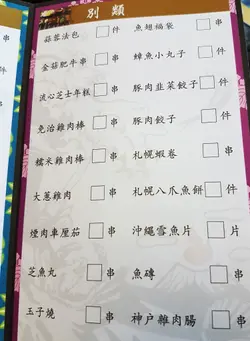 別類
蒜蓉法包 □串 魚翅福袋 □件
金菇肥牛串 □串 鱆魚小丸子 □件
流心芝士年糕 □串 豚肉韭菜餃子 □件
免治雞肉棒 □串 豚肉餃子 □件
糯米雞肉棒 □串 札幌蝦卷 □件
大蔥雞肉 □串 札幌八爪魚餅 □件
煙肉車厘茄 □串 沖繩雪魚片 □片
芝魚丸 □串 魚磚 □串
玉子燒 □串 神户雞肉腸 □串